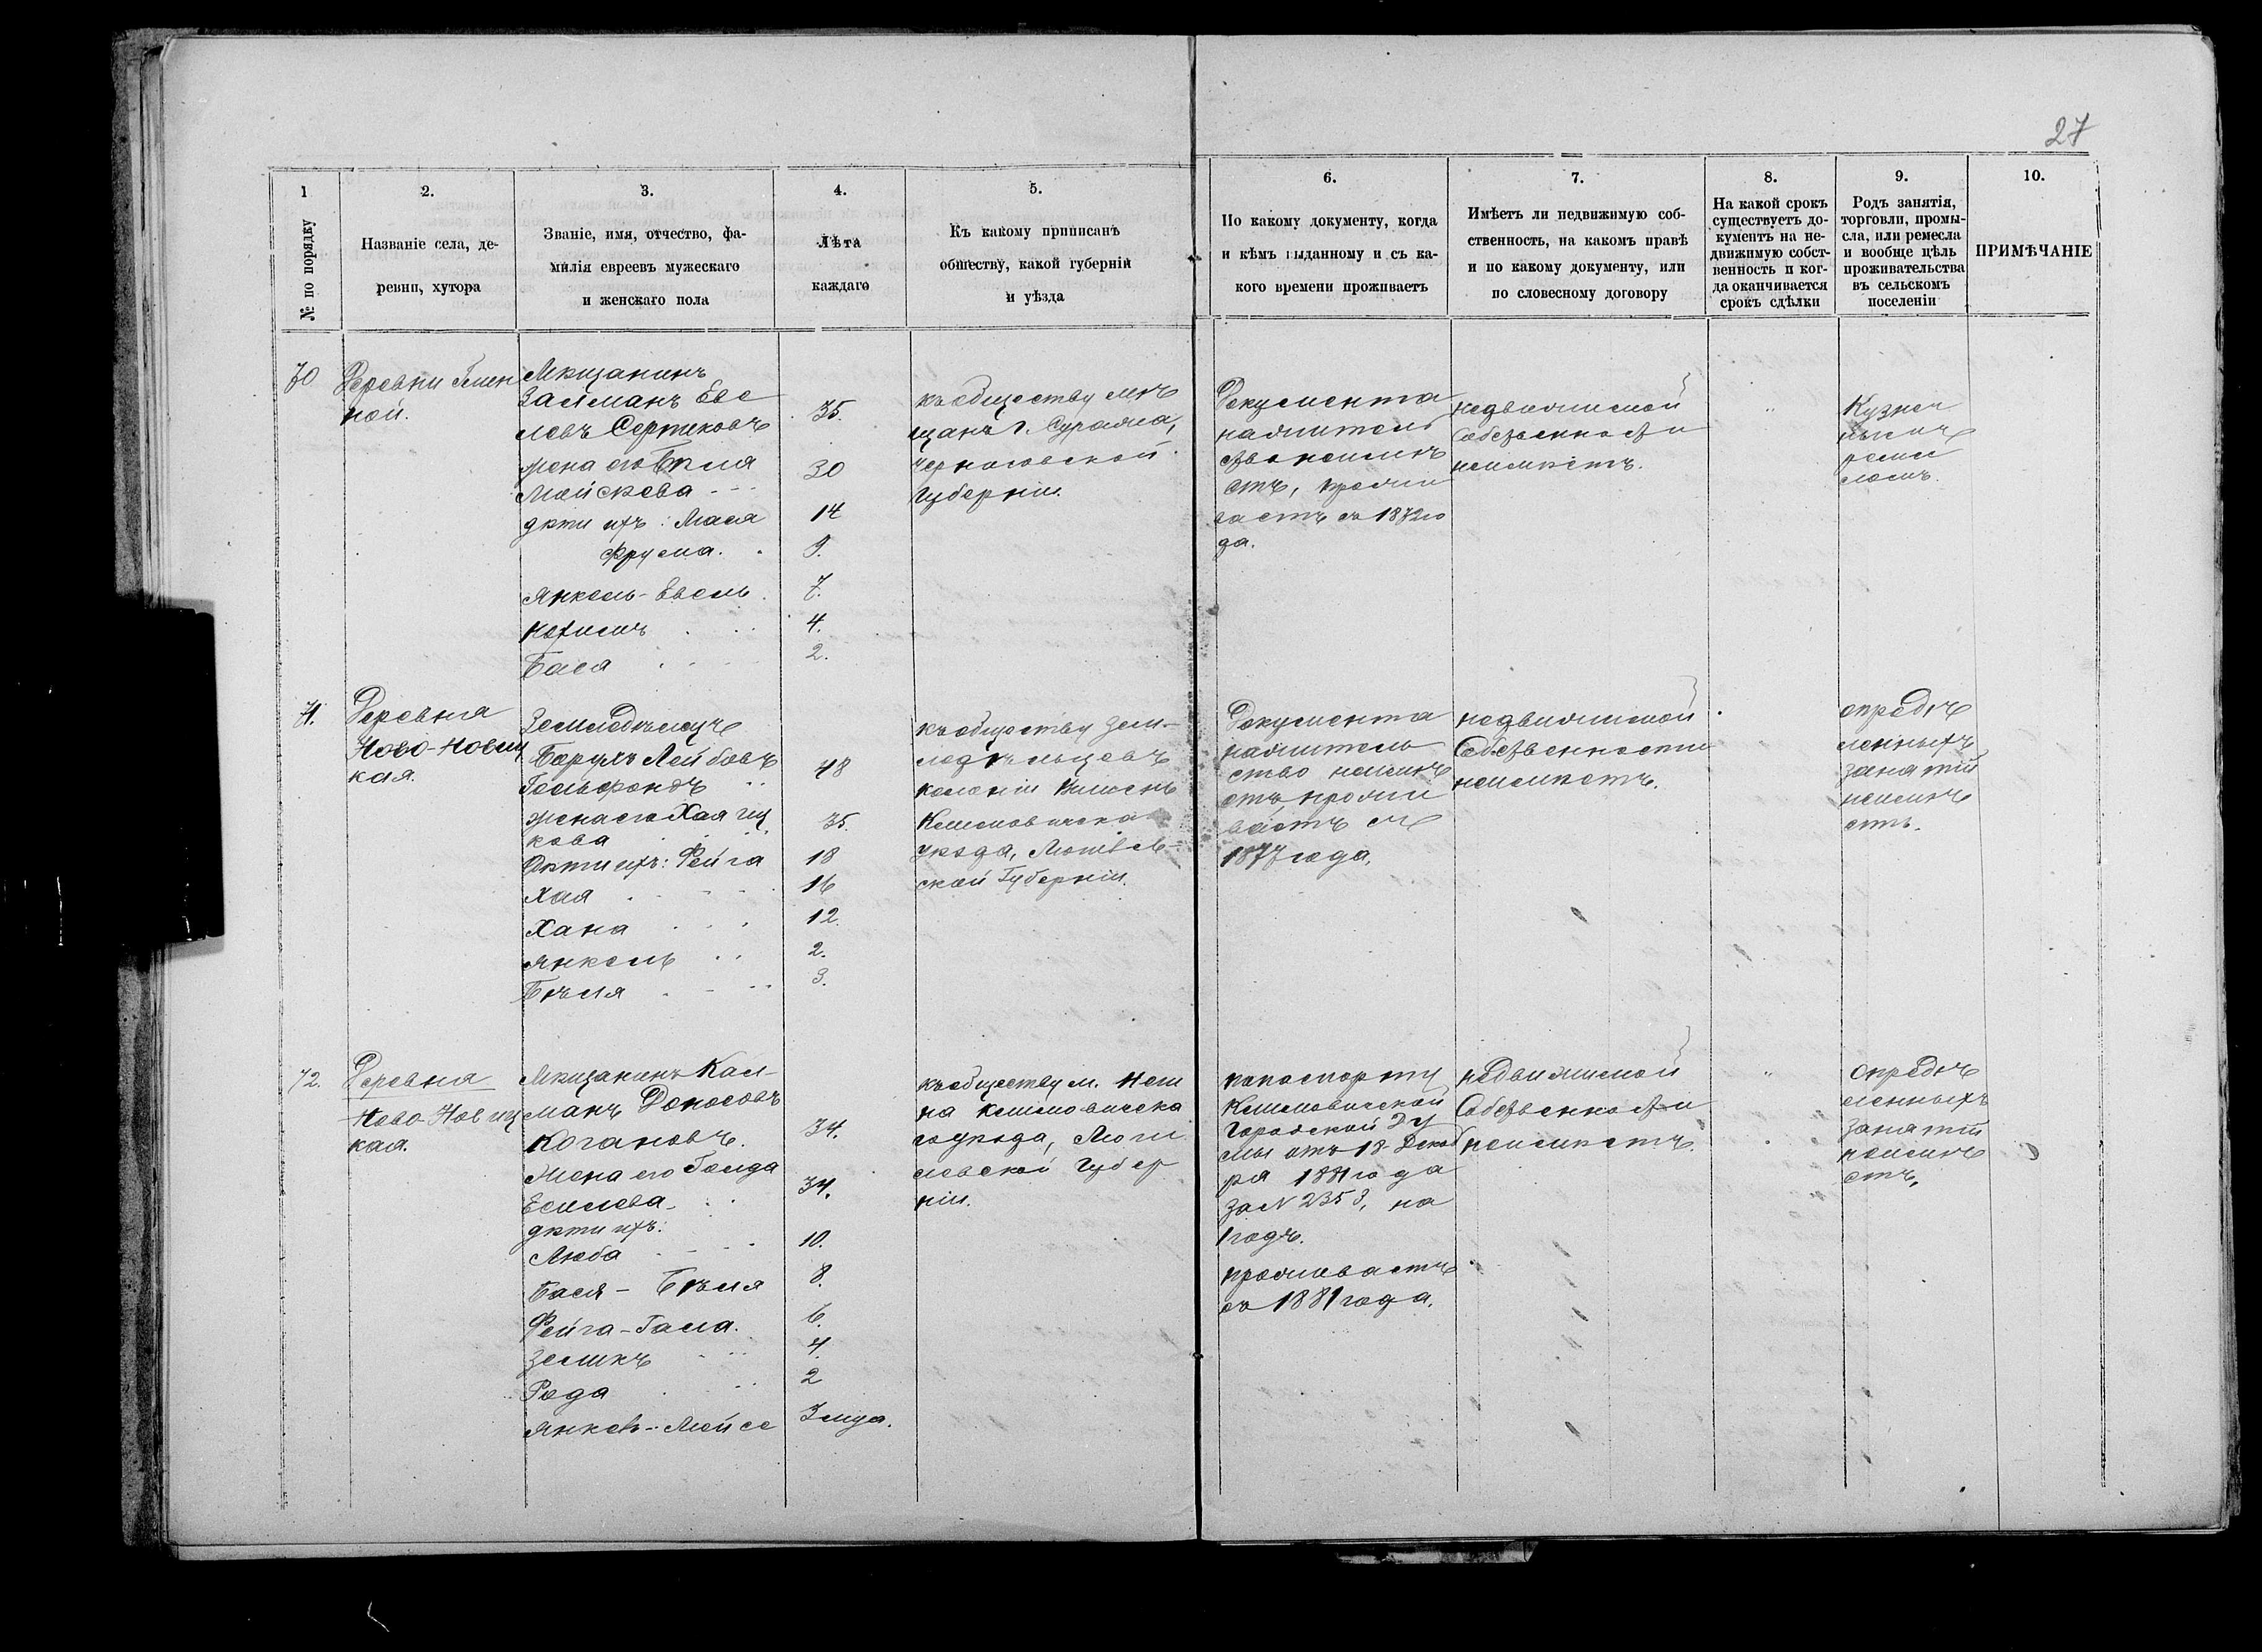 27
1
№ по порядку
2.
Названіе села, де-
ревни, хутора
3.
Званіе, имя, отчество, фа-
милія евреевъ мужескаго
и женскаго пола
4.
Лѣта
каждаго
5.
Къ какому приписанъ
обществу, какой губерніи
и уѣзда
6.
По какому документу, когда
и кѣмъ выданному и съ ка-
кого времени проживаетъ
7.
Имѣетъ ли недвижимую соб-
ственность, на какомъ правѣ
и по какому документу, или
по словесному договору
8.
На какой срокъ
существуетъ до-
кументъ на не-
движимую собст-
венность и ког-
да оканчивается
срокъ сдѣлки
9.
Родъ занятія,
торговли, промы-
сла, или ремесла
и вообще цѣль
проживательства
въ сельскомъ
поселеніи
10.
ПРИМѢЧАНІЕ
70
Деревни
ной.
Мѣщанинъ
Залманъ Еве
левъ Сертиковъ
жена его
Мойсѣева
дѣти ихъ: Масея
Фрума.
Янкель-Евель
Бася
35.
30
14
9.
7.
4.
2.
къ обществу мѣ
щанъ г. Суража,
Черниговской
Губерніи.
Документа
на житель
ство неимѣ
етъ, прожи
ваетъ съ 1872 го
да.
недвижимой
Собственности
неимѣетъ.
"
Кузнеч
нымъ
реме
сломъ.
71.
Деревня
Ново-Новиц
кая.
Земледѣлецъ
Борухъ Лейбовъ
Гельфондъ
жена его Хая Иц
кова
Дѣти ихъ: Фейга
Хая
Хана
Янкель
Бѣля
48
35.
18
16
12.
2.
3.
къ обществу зем-
ледѣльцевъ
колоніи
Климовичска
уѣзда, Могилев-
ской Губерніи.
Документа
на житель
ство неимѣ
етъ, прожи
ваетъ съ
1877 года.
недвижимой
Собственности
неимѣетъ.
опредѣ
ленныхъ
занятій
неимѣ
етъ.
72.
Деревня
Ново-Новиц
кая.
Мѣщанинъ Кал-
манъ
Когановъ.
Жена его Голда
дѣти ихъ:
Люба
Бася-Бѣля
Фейга-Гася.
Зеликъ
Рода
Янкель-Мойсе
34.
34.
10.
8.
6.
4.
2
3 мѣся.
къ обществу м.
на Климовичска
го уѣзда, Моги
левской Губер
ніи.
по паспорту
Климовичской
Городской Ду
мы отъ 18 Декаб
ря 1881 года
за N 2353, на
1 годъ.
проживаетъ
съ 1881 года.
недвижимой
Собственности
неимѣетъ.
"
опредѣ
ленныхъ
занятій
неимѣ
етъ.